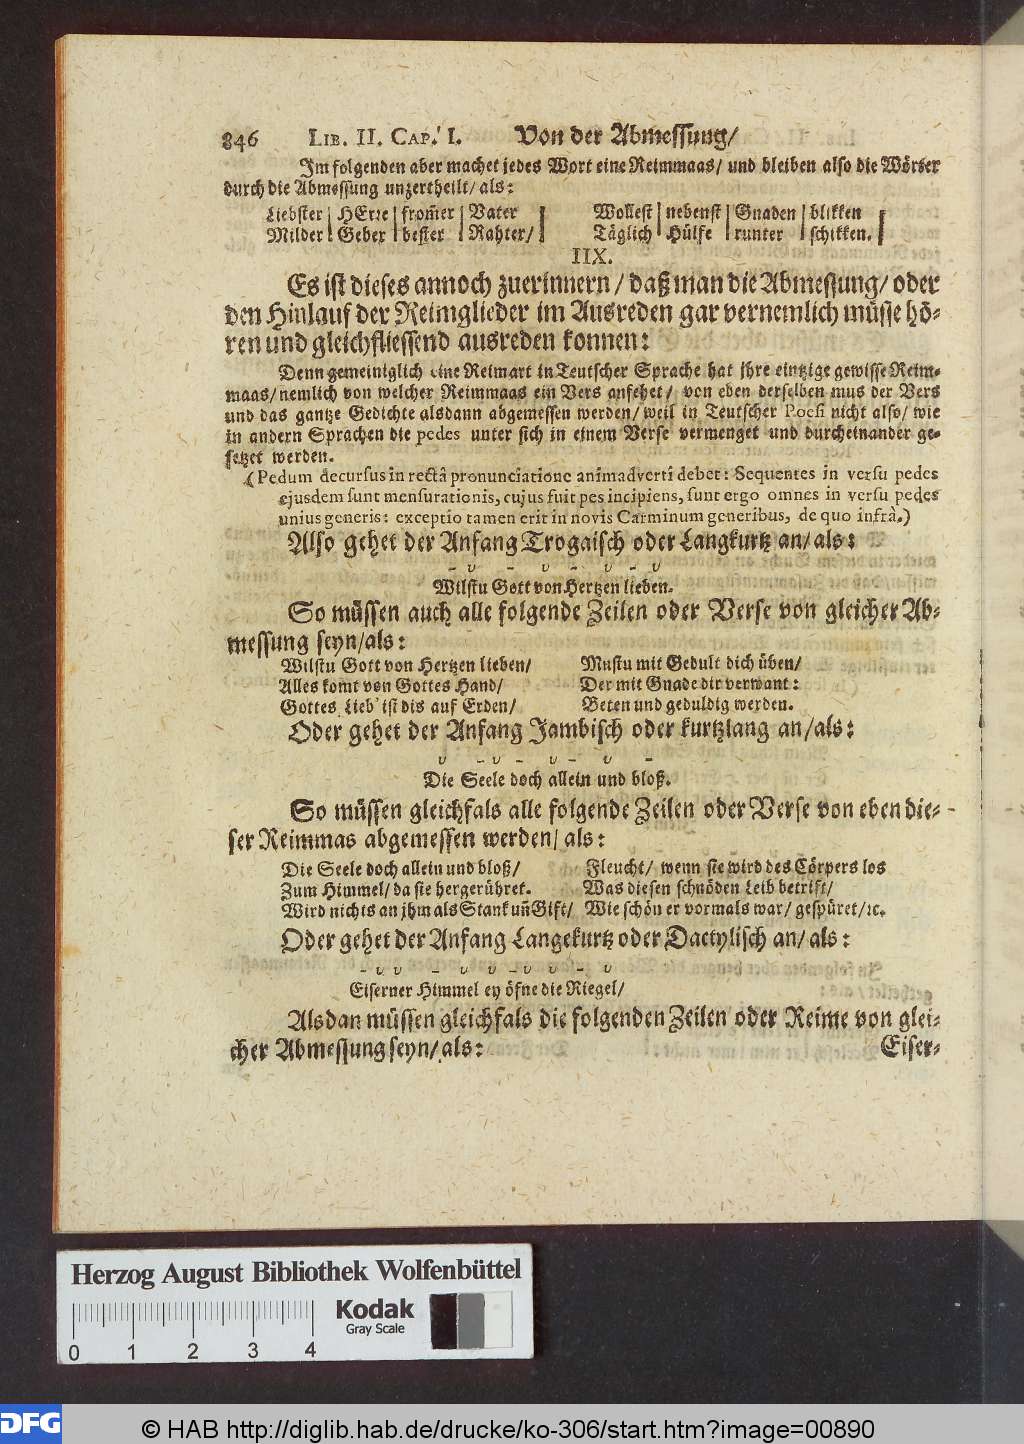 846 LIB. II. CAP. I. Von der Abmessung/
Im folgenden aber machet jedes Wort eine Reimmaas/ und bleiben also die Wörter
durch die Abmessung unzertheilt/ als:
Liebster | HErre | from̃er | Vater | Wollest | nebenst | Gnaden | blikken
Milder | Geber | bester | Rahter/ | Täglich | Hülfe | runter | schikken.
IIX.
Es ist dieses annoch zuerinnern/ daß man die Abmessung/ oder
den Hinlauf der Reimglieder im Ausreden gar vernemlich müsse hö-
ren und gleichfliessend ausreden konnen:
Denn gemeiniglich eine Reimart in Teutscher Sprache hat jhre eintzige gewisse Reim-
maas/ nemlich von welcher Reimmaas ein Vers anfehet/ von eben derselben mus der Vers
und das gantze Gedichte alsdann abgemessen werden/ weil in Teutscher Poesi nicht also/ wie
in andern Sprachen die pedes unter sich in einem Verse vermenget und durcheinander ge-
setzet werden.
(Pedum decursus in rectâ pronunciatione animadverti debet: Sequentes in versu pedes
ejusdem sunt mensurationis, cujus fuit pes incipiens, sunt ergo omnes in versu pedes
unius generis: exceptio tamen erit in novis Carminum generibus, de quo infrà.)
Also gehet der Anfang Trogaisch oder Langkurtz an/ als:
– υ – υ – υ – υ
Wilstu Gott von Hertzen lieben.
So müssen auch alle folgende Zeilen oder Verse von gleicher Ab-
messung seyn/ als:
Wilstu Gott von Hertzen lieben/ Mustu mit Gedult dich üben/
Alles komt von Gottes Hand/ Der mit Gnade dir verwant:
Gottes Lieb' ist dis auf Erden/ Beten und geduldig werden.
Oder gehet der Anfang Jambisch oder kurtzlang an/ als:
υ – υ – υ – υ –
Die Seele doch allein und bloß.
So müssen gleichfals alle folgende Zeilen oder Verse von eben die-
ser Reimmas abgemessen werden/ als:
Die Seele doch allein und bloß/ Fleucht/ wenn sie wird des Cörpers los
Zum Himmel/ da sie hergerühret. Was diesen schnöden Leib betrift/
Wird nichts an jhm als Stank uñ Gift/ Wie schön er vormals war/ gespüret/ ꝛc.
Oder gehet der Anfang Langekurtz oder Dactylisch an/ als:
– υ υ – υ υ – υ υ – υ
Eiserner Himmel ey öfne die Riegel/
Alsdan müssen gleichfals die folgenden Zeilen oder Reime von glei-
cher Abmessung seyn/ als: Eiser-
Herzog August Bibliothek Wolfenbüttel
Kodak
Gray Scale
0 1 2 3 4
DFG
© HAB http://diglib.hab.de/drucke/ko-306/start.htm?image=00890